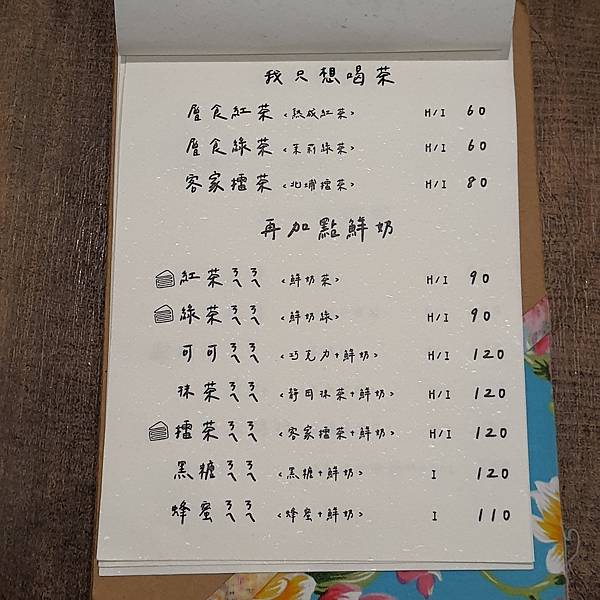 我只想喝茶
厝食紅茶 <熟成紅茶> H/I 60
厝食綠茶 <茉莉綠茶> H/I 60
客家擂茶 <北埔擂茶> H/I 80
再加點鮮奶
紅茶ㄋㄟㄋㄟ <鮮奶茶> H/I 90
綠茶ㄋㄟㄋㄟ <鮮奶綠> H/I 90
可可ㄋㄟㄋㄟ <巧克力+鮮奶> H/I 120
抹茶ㄋㄟㄋㄟ <靜岡抹茶+鮮奶> H/I 120
擂茶ㄋㄟㄋㄟ <客家擂茶+鮮奶> H/I 120
黑糖ㄋㄟㄋㄟ <黑糖+鮮奶> I 120
蜂蜜ㄋㄟㄋㄟ <蜂蜜+鮮奶> I 110